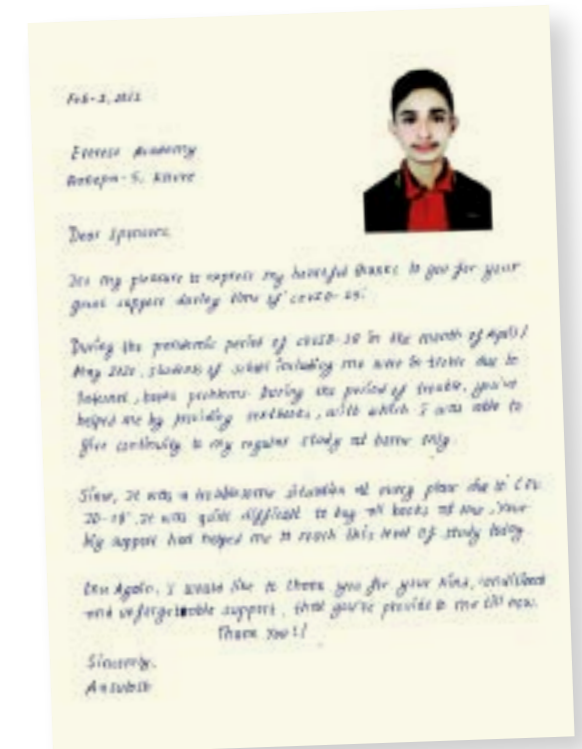 Dear Sponsors,
Its my pleasure to express my heartful thanks to you for your
great support during time of covid-19.
During the pandemic period of covid-19 in the month of April/
May 2020, students of school including me were in due to
Internet, books problems. During the period of trouble, you've
helped me by providing textbooks, with which I was able to
give continuity to my regular study at home only.
Since, It was a troublesome situation at every place due to
It was quite difficult to buy all books at one, Your
big support had helped me to reach this level of study today
Again, I would like to thank you for your kind,
and unforgettable support, that you've provide to me till now.
Thank You!!
Sincerely,